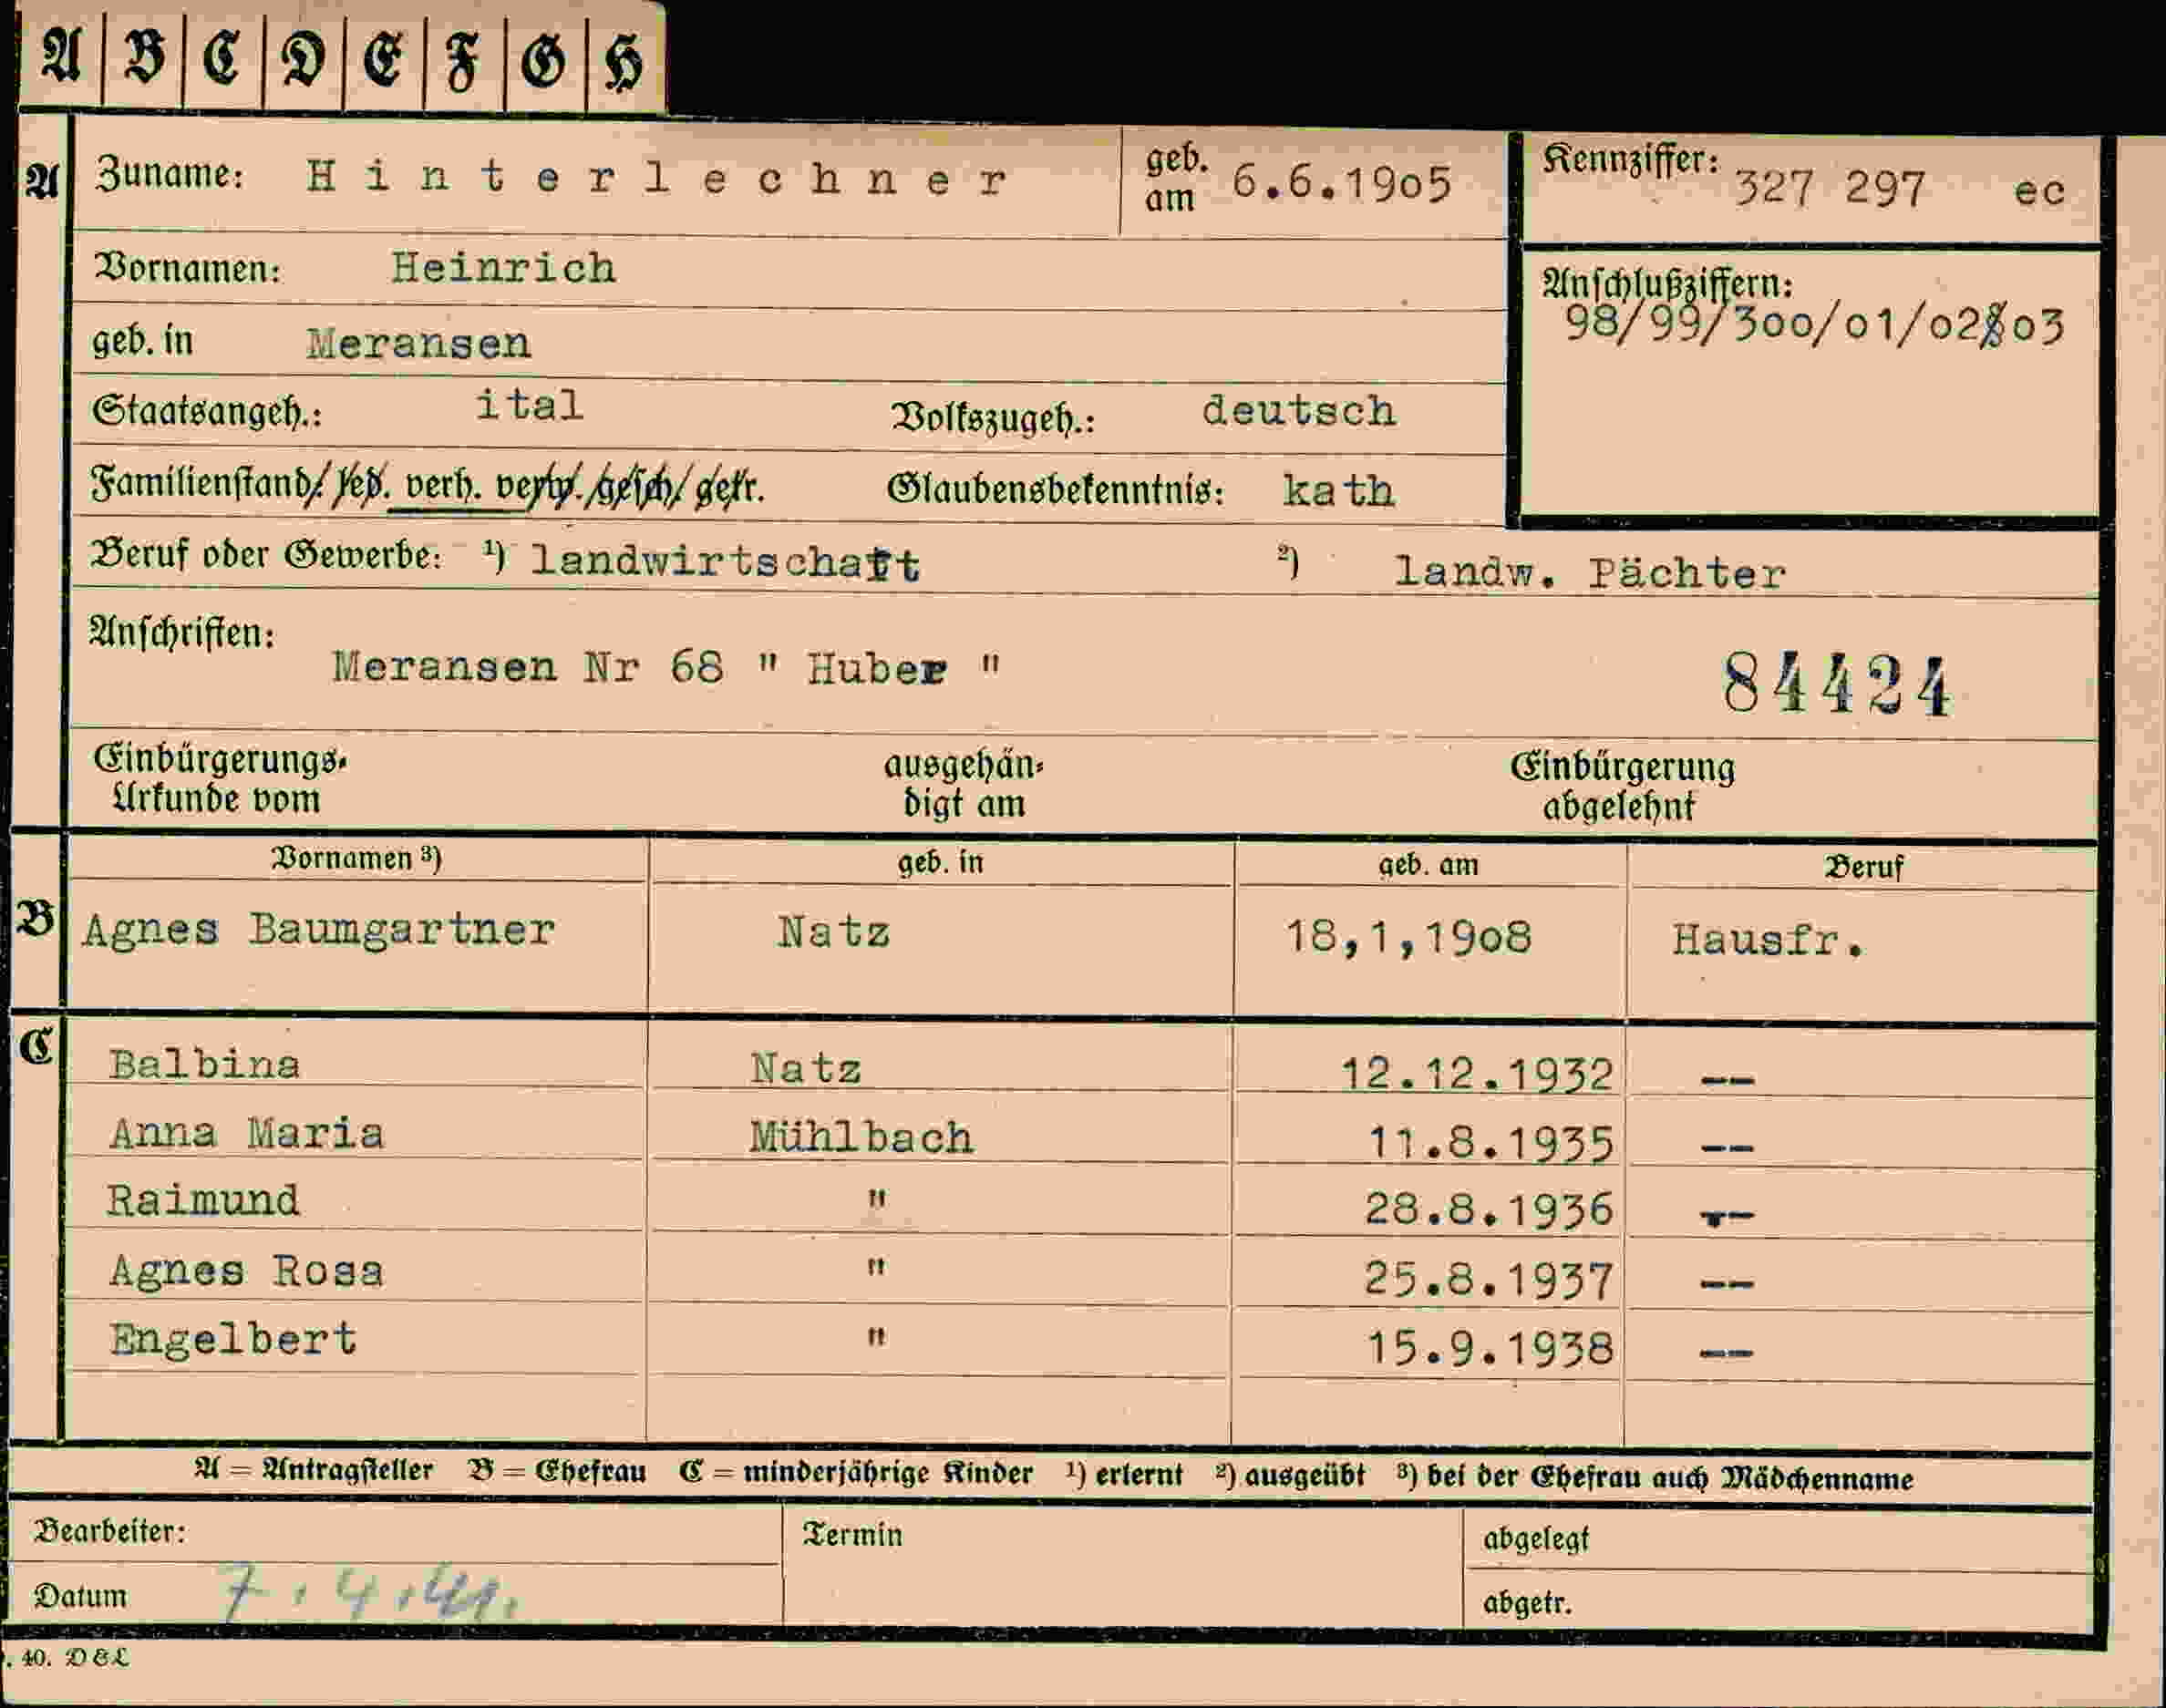 A B C D E F G H
A Zuname: Hinterlechner geb. am 6.6.1905 Kennziffer: 327 297 ec
Vornamen: Heinrich
Anschlußziffern:
98/99/300/01/02/03
geb. in Meransen
Staatsangeh.: ital Volkszugeh.: deutsch
Familienstand: led. verh. verw. gesch. getr. Glaubensbekenntnis: kath
Beruf oder Gewerbe: ¹) landwirtschaft ²) landw. Pächter
Anschriften:
Meransen Nr 68 " Huber " 84424
Einbürgerungs-Urkunde vom ausgehän-digt am Einbürgerung abgelehnt
Vornamen ³) geb. in geb. am Beruf
B Agnes Baumgartner Natz 18,1,1908 Hausfr.
C Balbina Natz 12.12.1932 --
Anna Maria Mühlbach 11.8.1935 --
Raimund " 28.8.1936 --
Agnes Rosa " 25.8.1937 --
Engelbert " 15.9.1938 --
A = Antragsteller B = Ehefrau C = minderjährige Kinder ¹) erlernt ²) ausgeübt ³) bei der Ehefrau auch Mädchenname
Bearbeiter: Termin abgelegt
Datum 7.4.41. abgetr.
. 40. D&L